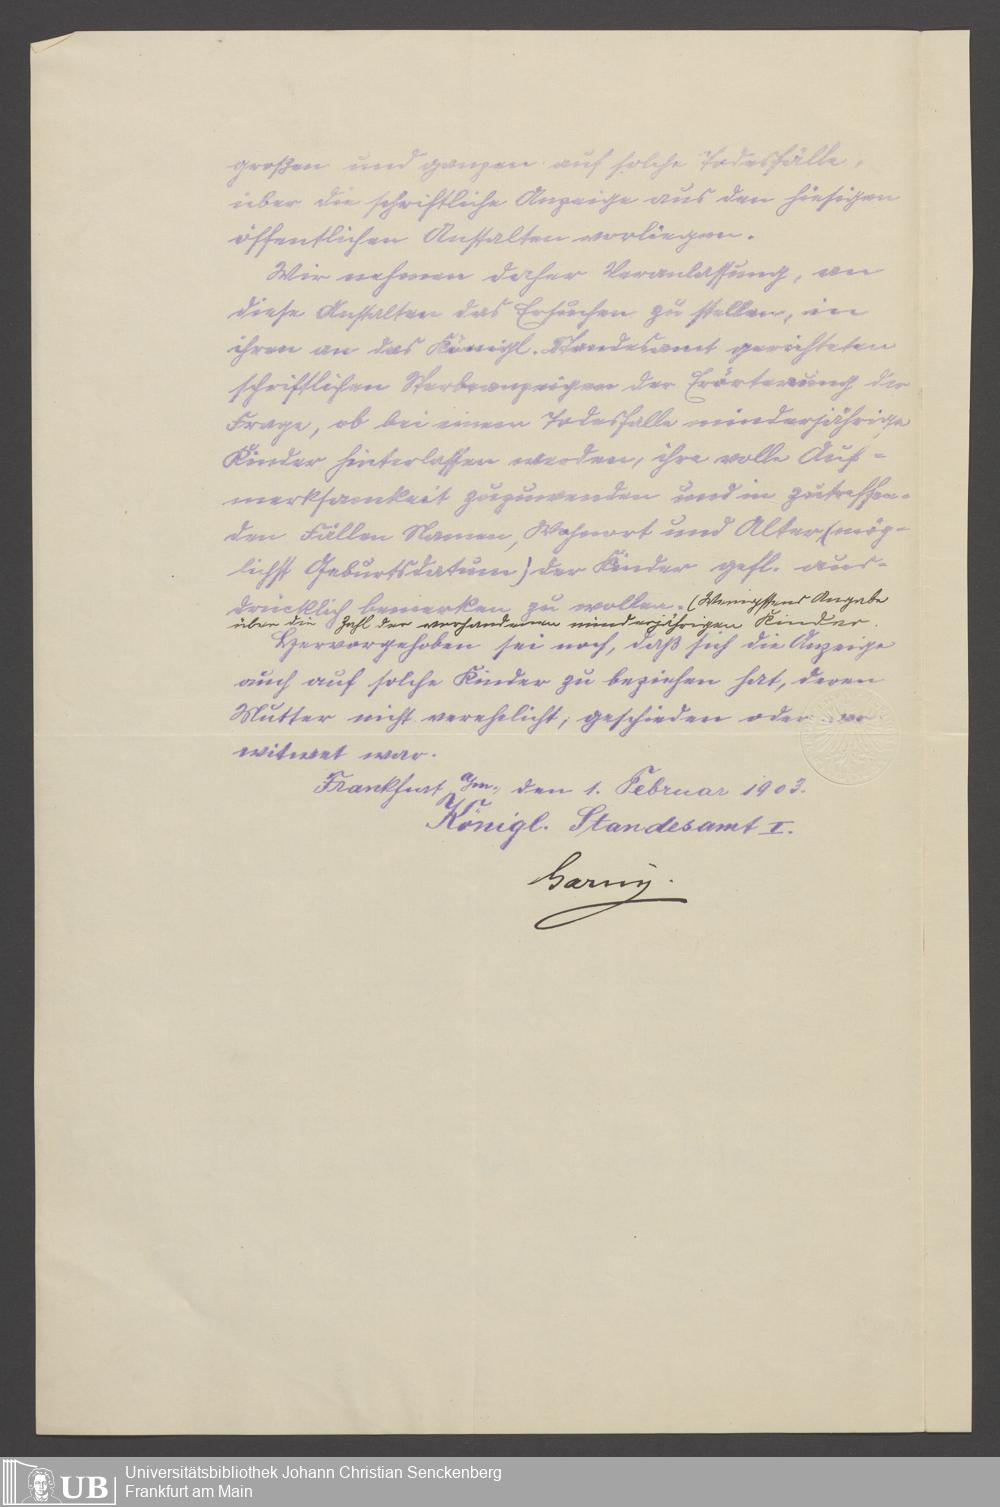 großen und ganzen auf solche Todesfälle,
über die schriftliche Anzeige aus den hiesigen
öffentlichen Anstalten vorliegen.
Wir nehmen daher Veranlassung, an
diese Anstalten das Ersuchen zu stellen, in
ihren an das Königl. Standesamt gerichteten
schriftlichen Sterbeanzeigen der Erörterung der
Frage, ob bei einem Todesfalle minderjährige
Kinder hinterlassen werden, ihre volle Auf-
merksamkeit zuzuwenden und in zutreffen-
den Fällen Namen, Wohnort und Alter (mög-
lichst Geburtsdatum) der Kinder gefl. aus-
drücklich bemerken zu wollen. (Wenigstens Angabe
über die Zahl der vorhandenen minderjährigen Kinder.
Hervorgehoben sei noch, daß sich die Anzeige
auch auf solche Kinder zu beziehen hat, deren
Mutter nicht verehelicht, geschieden oder ver
witwet war.
Frankfurt a/m., den 1. Februar 1903.
Königl. Standesamt I.
Universitätsbibliothek Johann Christian Senckenberg
Frankfurt am Main
UB